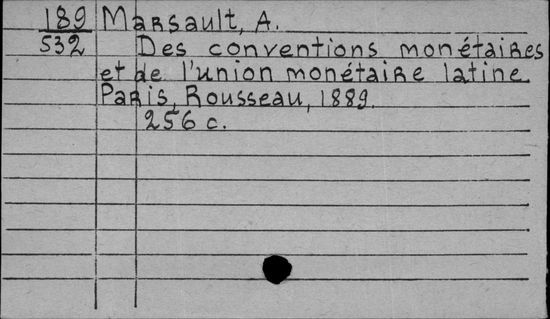 189 Marsault, A.
532 Des conventions monétaires
et de l'union monétaire latine.
Paris, Rousseau, 1889.
256 c.